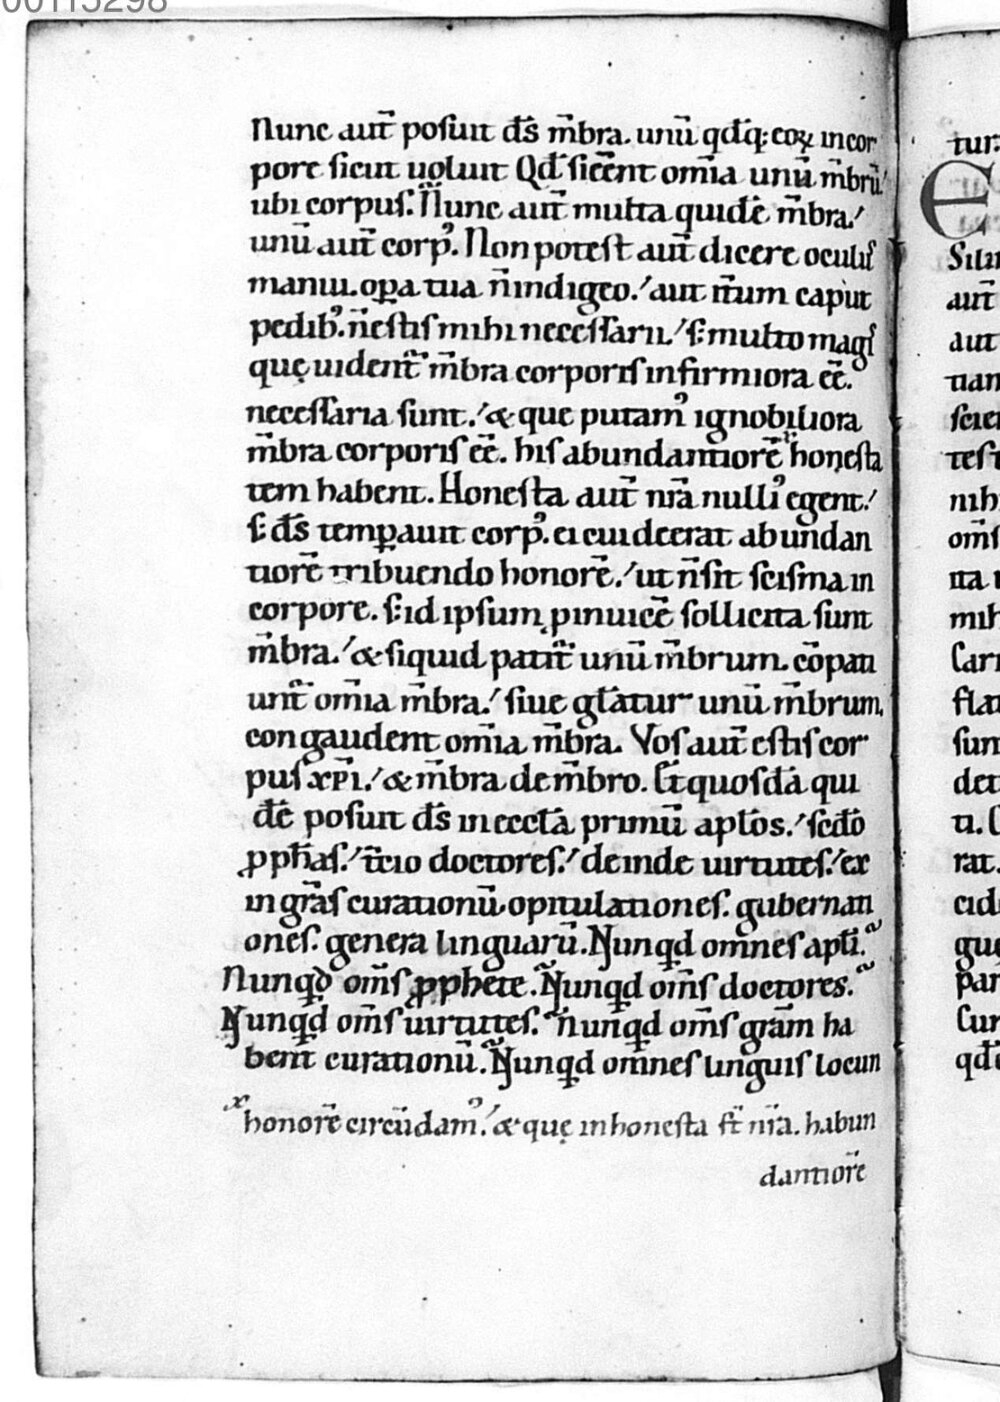 00115298
Nunc aut̄ posuit d̄s m̄bra. unū qđq; eoꝝ in cor
pore sicut uoluit. Qđ si eēnt om̄ia unū m̄brū.
ubi corpus. Nunc aut̄ multa quidē m̄bra.
unū aut̄ corpꝰ. Non potest aut̄ dicere oculus
manui. opa tua n̄ indigeo. aut it̄um caput
pedibꝰ. n̄ estis mihi necessarii. s; multo magis
que uident̄ m̄bra corporis infirmiora eē.
necessaria sunt. & que putamꝰ ignobiliora
m̄bra corporis eē. his abundantiorē honesta
tem habent. Honesta aut̄ nr̄a nulliꝰ egent.
s; d̄s temꝑauit corpꝰ. ei cui deerat abundan
tiorē tribuendo honorē. ut n̄ sit scisma in
corpore. s; id ipsum ꝑinuicē sollicita sunt
m̄bra. & siquid patit̄ unū m̄brum. cōpati
unt̄ om̄ia m̄bra. siue gl̄atur unū m̄brum.
congaudent om̄ia m̄bra. Vos aut̄ estis cor
pus xp̄i. & m̄bra de m̄bro. Et quosdā qui
dē posuit d̄s in eccl̄a primū apl̄os. scđo
ꝓph̄as. t̄cio doctores. deinde uirtutes. ex
in gr̄as curationū. opitulationes. gubernati
ones. genera linguarū. Nunqđ omnes apl̄i.
Nunqđ om̄s ꝓphete. Nunqđ om̄s doctores.
Nunqđ om̄s uirtutes. Nunqđ om̄s gr̄am ha
bent curationū. Nunqđ omnes linguis locun
honorē circūdamꝰ. & que inhonesta st̄ nr̄a. habun
dantiorē
tur.
E
Silin
aut̄
aut
tian
scien
test
nih
om̄s
ita
mih
Cari
flat
sun
det
ti.
rat.
cid
gu
par
Cur
qđ